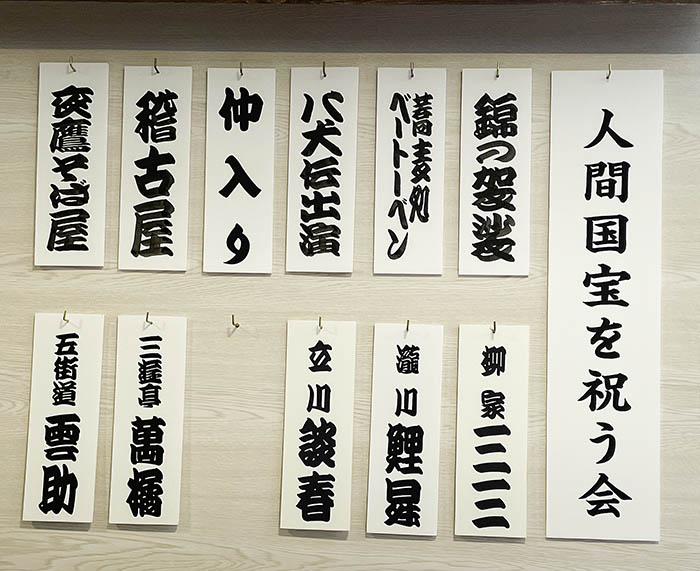 人間国宝を祝う会
錦の袈裟
蕎麦処
ベートーベン
八犬伝出演
仲入り
稽古屋
夜鷹そば屋
柳家三三
瀧川鯉昇
立川談春
三遊亭萬橘
五街道雲助